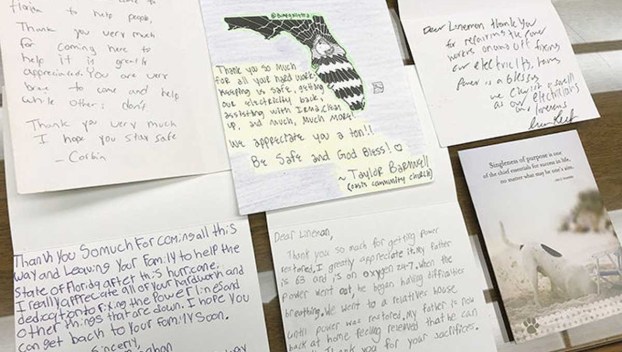 Florida to help people,
Thank you very much
for coming here to
help it is greatly
appreciated. You are very
brave to come and help
while others don't
Thank you very much
I hope you stay safe
- Corbin
Thank you so much
for all your hard work
keeping us safe, getting
our electricity back,
assisting with Irma clean
up, and much, much More!
We appreciate you a ton!!
Be Safe and God Bless! ♡
~ Taylor Barnwell
(oasis community church)
Dear Linemen, thank you
for repairing the power
our electricity, having
power is a blessing
as our electricians
Singleness of purpose is one
of the chief essentials for success in life,
no matter what may be one's aim.
Thank You So much For coming all this
way and Leaving Your Family to help the
State of Florida after this hurricane.
I really appreciate all of your hard work and
dedication to fixing the Power lines and
other things that are down. I hope you
can get back to Your family Soon.
Sincerly,
Dear Lineman,
Thank you so much for getting power
restored, I greatly appreciate it. My father
is 63 and is on oxygen 24-7. When the
power went out, he began having difficulties
breathing. We went to a relatives house
until power was restored. My father is now
back at home feeling relieved that he can
Thank you for your sacrifices.